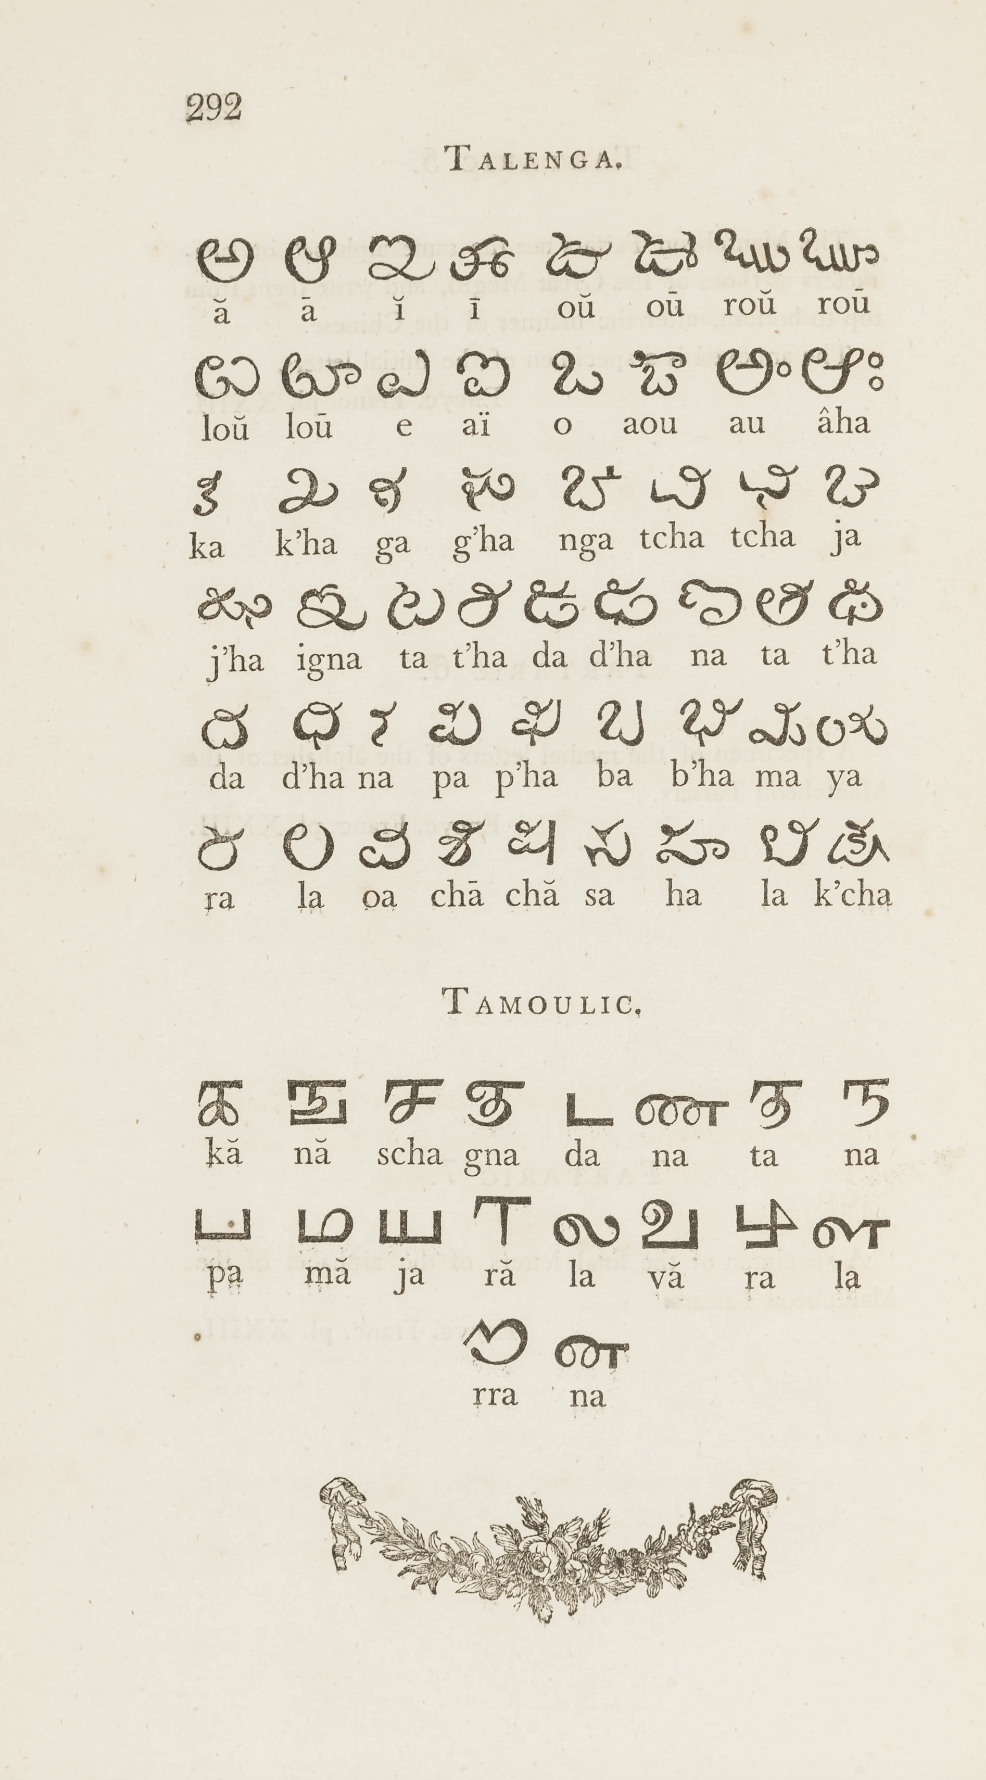 292
TALENGA.
అ ఆ ఇ ఈ ఉ ఊ ఋ ౠ
ă ā ĭ ī oŭ oū roŭ roū
ఌ ౡ ఎ ఐ ఒ ఔ అం ఆః
loŭ loū e aï o aou au âha
క ఖ గ ఘ ఙ చ ఛ జ
ka k’ha ga g’ha nga tcha tcha ja
ఝ ఞ ట ఠ డ ఢ ణ త థ
j’ha igna ta t’ha da d’ha na ta t’ha
ద ధ న ప ఫ బ భ మ య
da d’ha na pa p’ha ba b’ha ma ya
ర ల వ శ ష స హ ళ క్ష
ra la oa chā chă sa ha la k’cha
TAMOULIC.
க ங ச ஞ ட ண த ந
kă nă scha gna da na ta na
ப ம ய ர ல வ ழ ள
pa mă ja ră la vă ra la
ற ன
rra na